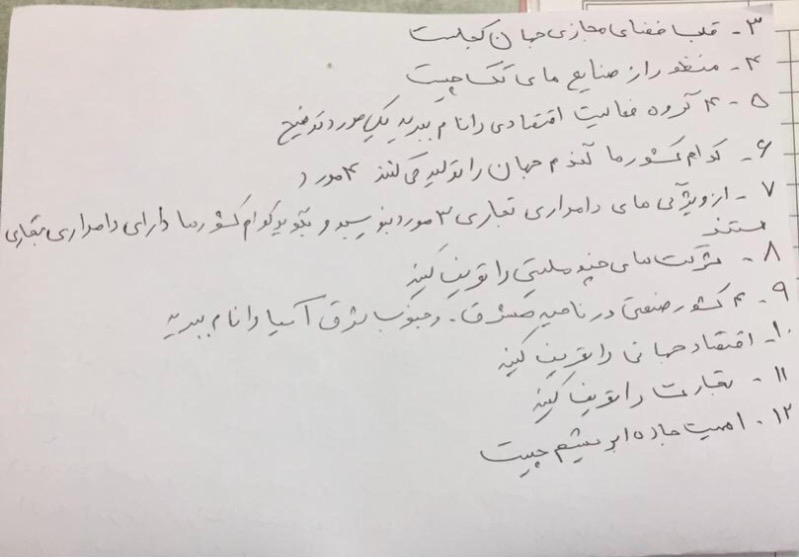 ۳- قلب فضای مجازی جهان کجاست
۴- منظور از صنایع های تک چیست
۵- ۴ گروه فعالیت اقتصادی را نام ببرید یک مورد توضیح
۶- کدام کشورها گندم جهان را تولید می کنند ۴ مورد
۷- از ویژگی های دامداری تجاری ۳ مورد بنویسید و بگویید کدام کشورها دارای دامداری تجاری
هستند
۸- شرکت های چند ملیتی را تعریف کنید
۹- ۴ کشور صنعتی در ناحیه شرق و جنوب شرق آسیا را نام ببرید
۱۰- اقتصاد جهانی را تعریف کنید
۱۱- تجارت را تعریف کنید
۱۲- اهمیت جاده ابریشم چیست